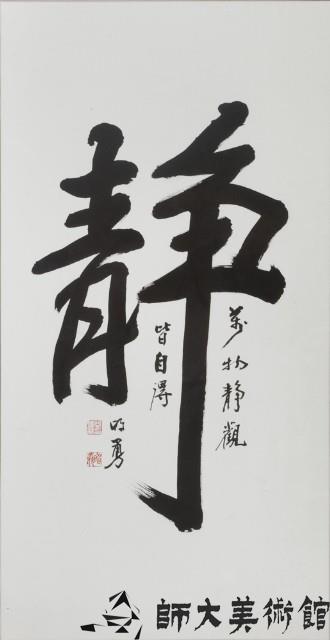 静
萬物静觀
皆自得
明勇
師大美術館